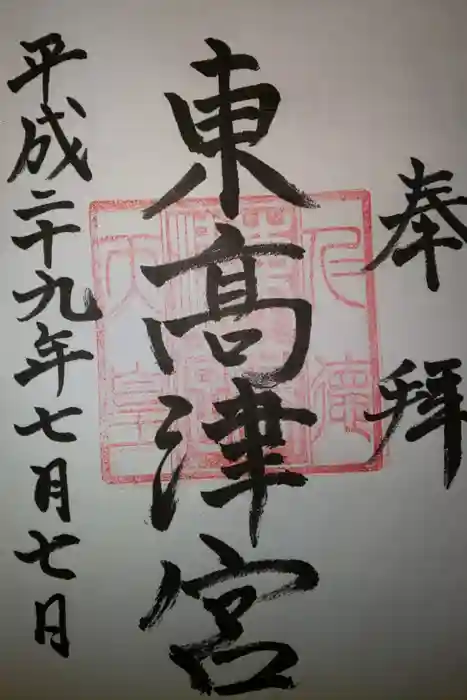 奉拝
東高津宮
平成二十九年七月七日
仁徳
天皇